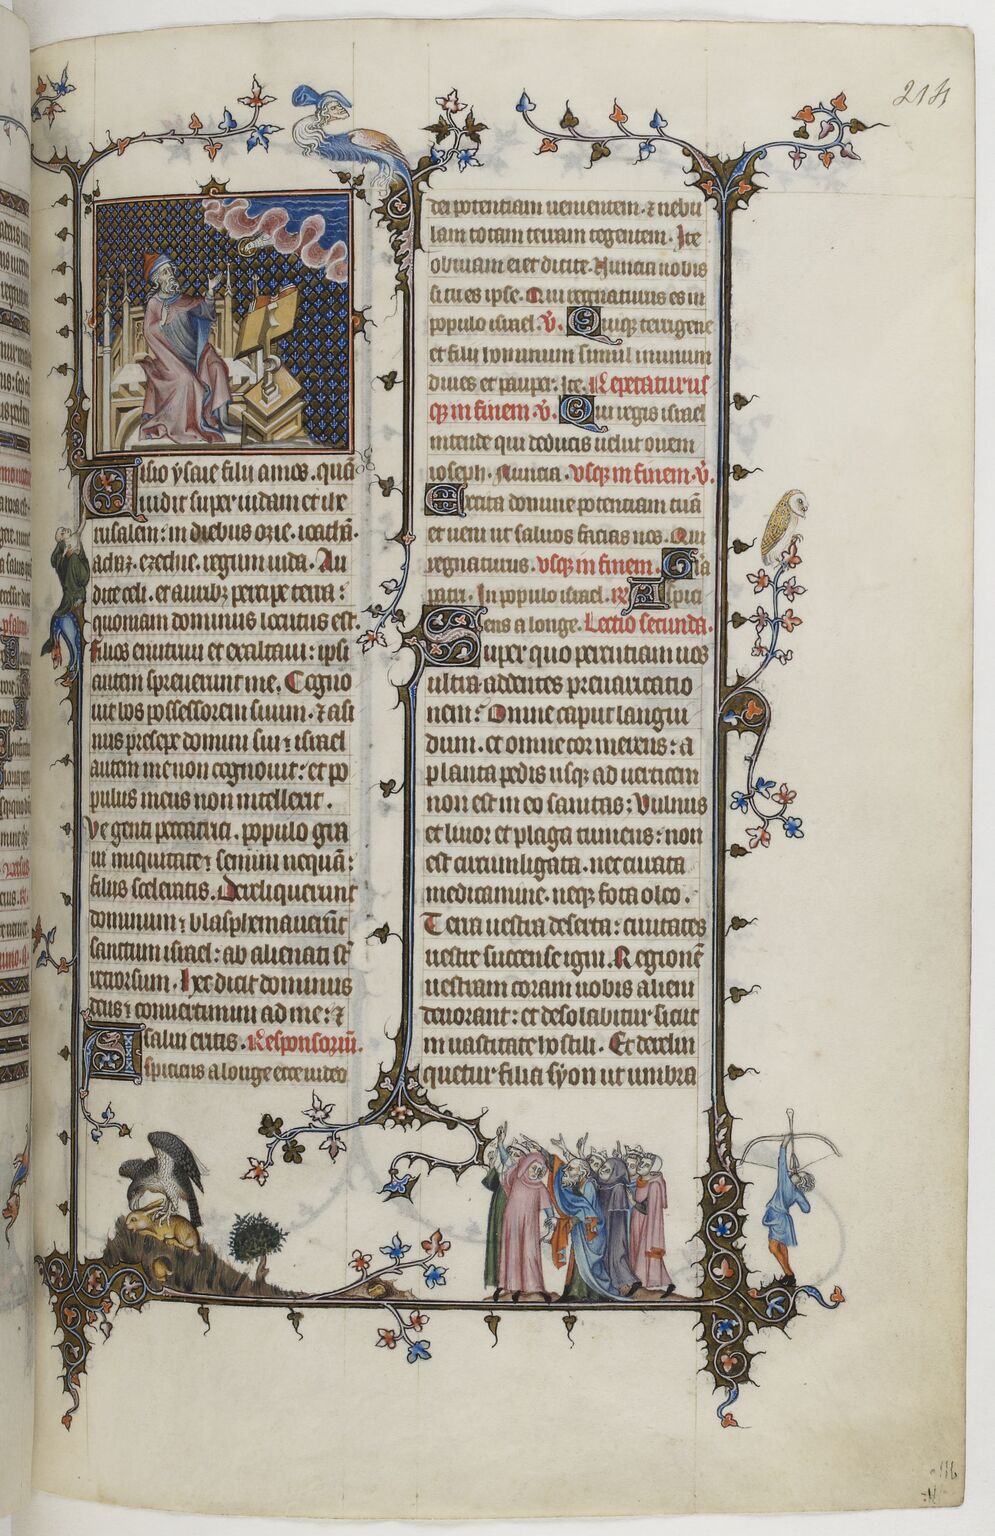 214
Visio ysaie filii amos. quā
uidit super iudam et ihe
rusalem: in diebus ozie. ioathā.
achaz. ezechie. regum iuda. Au
dite celi. et auribꝫ percipe terra:
quoniam dominus locutus est.
filios enutriui et exaltaui: ipsi
autem spreuerunt me. Cogno
uit bos possessorem suum. ⁊ asi
nus presepe domini sui: israel
autem me non cognouit: et po
pulus meus non intellexit.
Ve genti peccatrici. populo gra
ui iniquitate: semini nequā:
filiis sceleratis. Dereliquerunt
dominum: blasphemauerūt
sanctum israel: ab alienati sūt
retrorsum. Hec dicit dominus
deus: conuertimini ad me: ⁊
salui eritis. Responsoriū.
Aspiciens a longe ecce uideo
dei potentiam uenientem. ⁊ nebu
lam totam terram tegentem. Ite
obuiam ei et dicite. Nuncia nobis
si tu es ipse. Qui regnaturus es in
populo israel. v̄. Quiqꝫ terrigene
et filii hominum simul in unum
diues et pauper. Ite. Repetaturus
qꝫ in finem v̄. Qui regis israel
intende qui deducis uelut ouem
ioseph. Nuncia. usqꝫ in finem. v̄.
Excita domine potentiam tuā
et ueni ut saluos facias nos. Qui
regnaturus. usqꝫ in finem. Glīa
patri. In populo israel. R Aspici
ens a longe. Lectio secunda.
Super quo percutiam uos
ultra addentes preuaricatio
nem: Omne caput langui
dum. et omne cor merens: a
planta pedis usqꝫ ad uerticem
non est in eo sanitas: Vulnus
et liuor et plaga tumens: non
est circumligata. nec curata
medicamine. neqꝫ fota oleo.
Terra uestra deserta: ciuitates
uestre succense igni. Regionē
uestram coram uobis alieni
deuorant: et desolabitur sicut
in uastitate hostili. Et derelin
quetur filia syon ut umbra